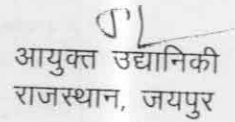 आयुक्त उद्यानिकी
राजस्थान, जयपुर